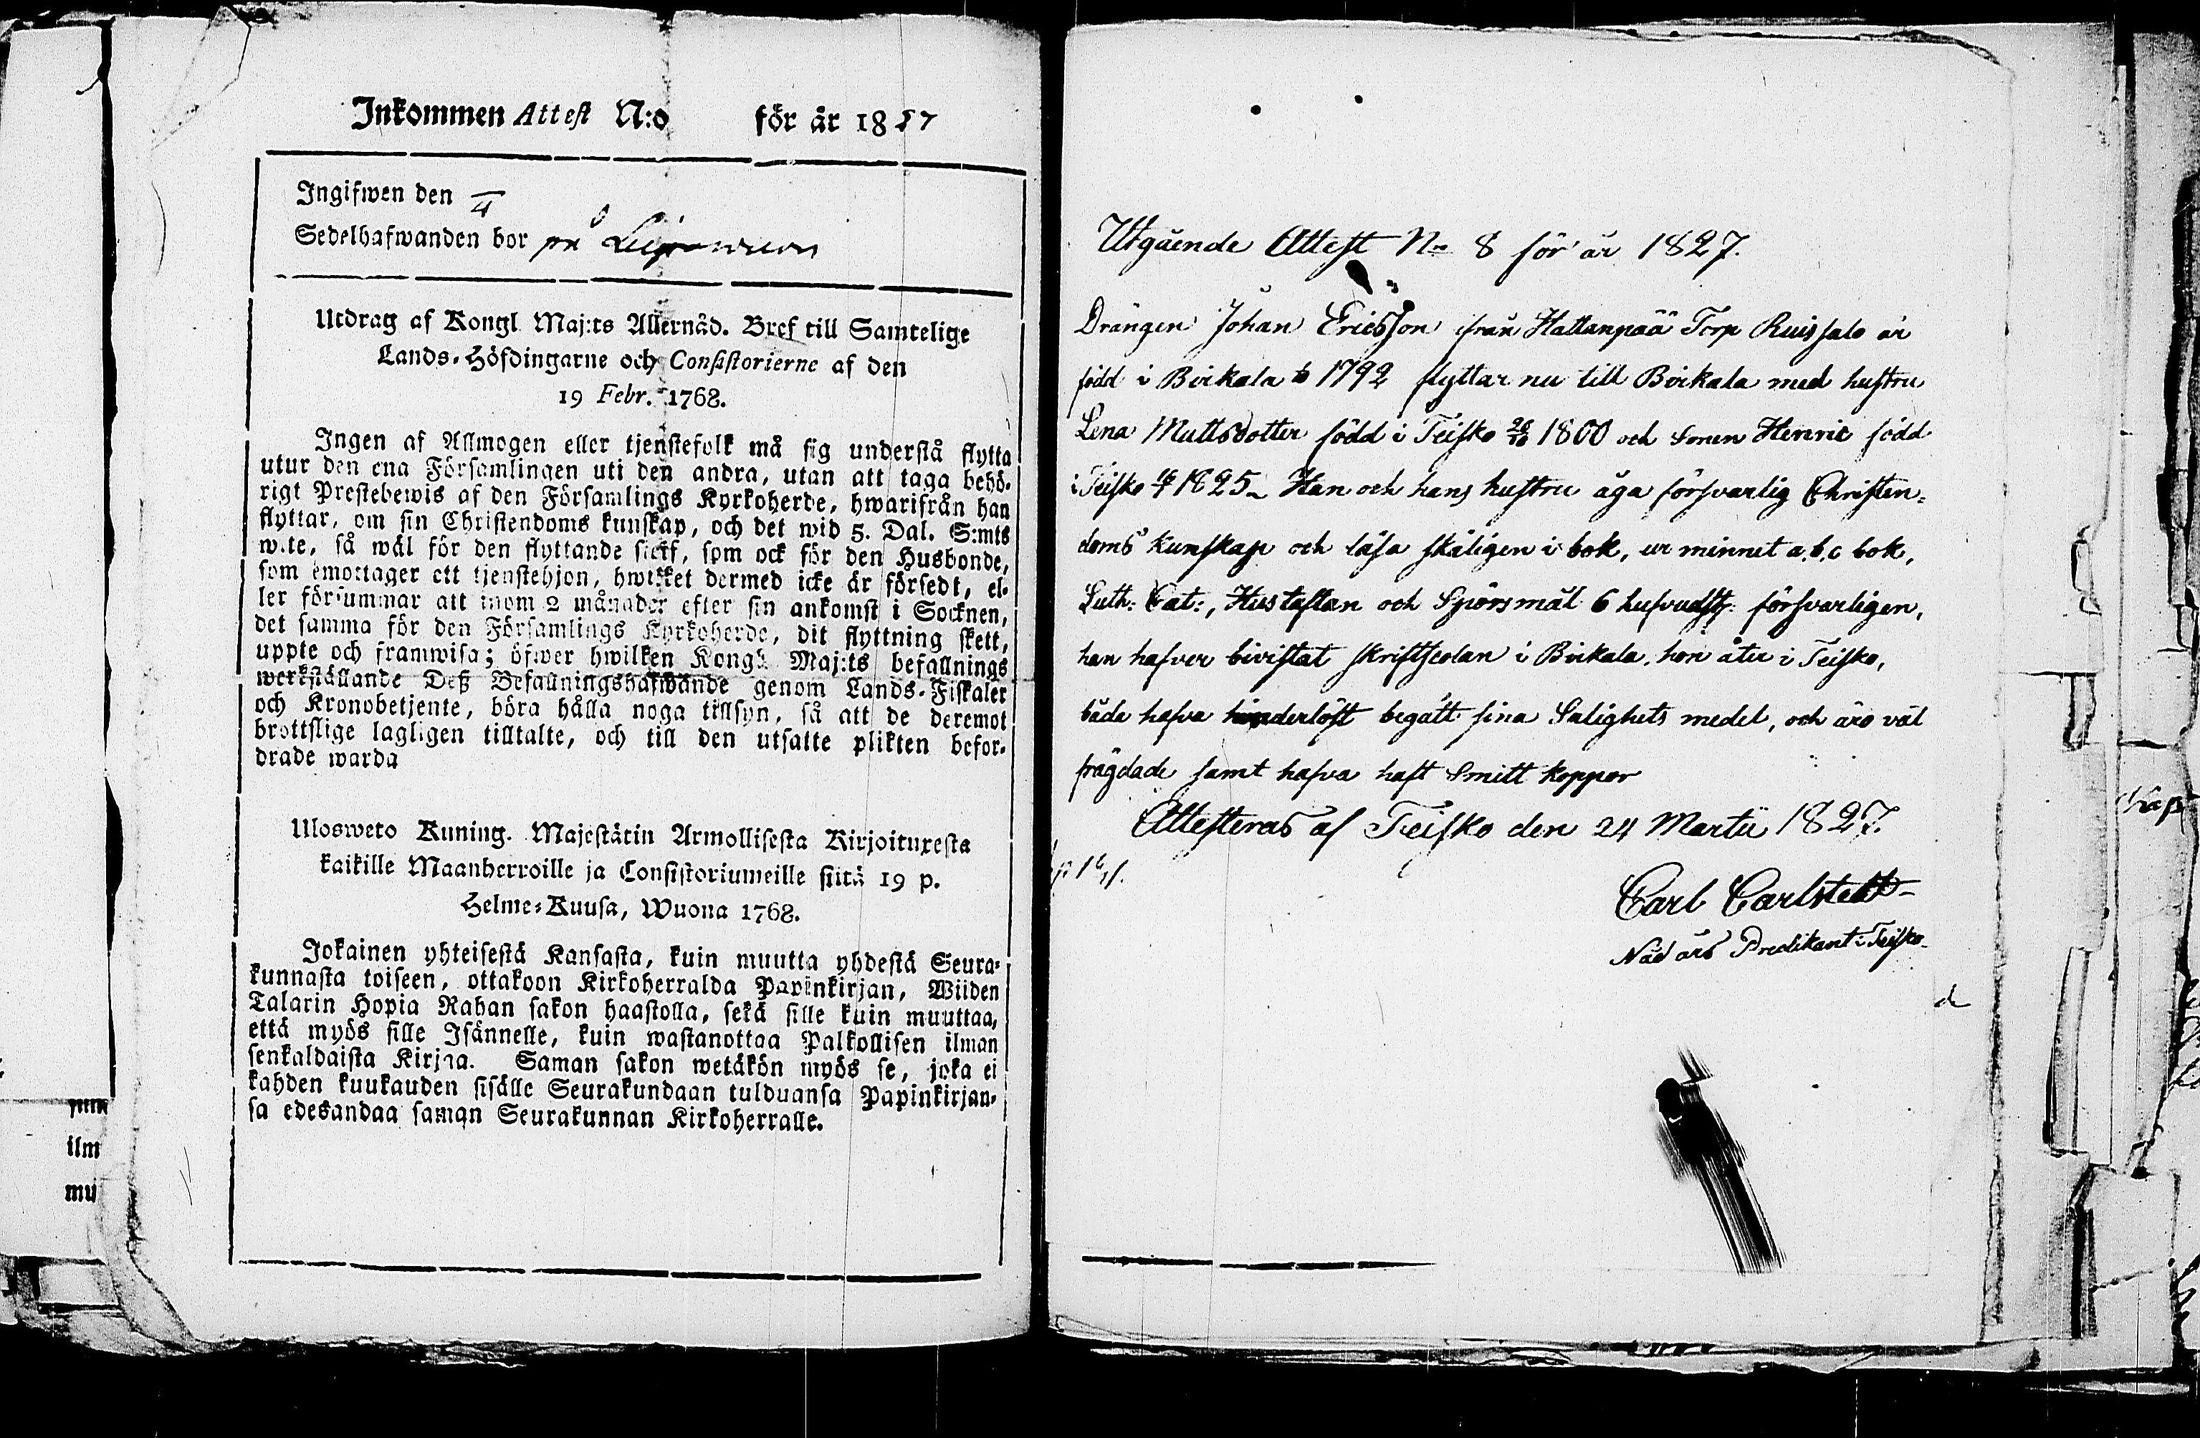 Inkommen Attest N:o för år 1827
Ingifwen den /4
Sedelhafwanden bor på
Utdrag af Kongl. Maj:ts Allernåd. Bref till Samtelige
Lands-Höfdingarne och Consistorierne af den
19 Febr. 1768.
Ingen af Allmogen eller tjenstefolk må sig understå flytta
utur den ena Församlingen uti den andra, utan att taga behö-
rigt Prestebewis af den Församlings Kyrkoherde, hwarifrån han
flyttar, om sin Christendoms kunskap, och det wid 5. Dal. S:mts
wite, så wäl för den flyttande sielf, som ock för den Husbonde,
som emottager ett tjenstehjon, hwilket dermed icke är försedt, el-
ler försummar att inom 2 månader efter sin ankomst i Socknen,
det samma för den Församlings Kyrkoherde, dit flyttning skett,
uppte och framwisa; öfwer hwilken Kongl. Maj:ts befallnings
werkställande Deß Befallningshafwande genom Lands-Fiskaler
och Kronobetjente, böra hålla noga tillsyn, så att de deremot
brottslige lagligen tilltalte, och till den utsatte plikten befor-
drade warda
Ulosweto Kuning. Majestätin Armollisesta Kirjoituxesta
kaikille Maanherroille ja Consistoriumeille siitä 19 p.
Helme-Kuusa, Wuona 1768.
Jokainen yhteisestä Kansasta, kuin muutta yhdestä Seura-
kunnasta toiseen, ottakoon Kirkoherralda Papinkirjan, Wiiden
Talarin Hopia Rahan sakon haastolla, sekä sille kuin muuttaa,
että myös sille Isännelle, kuin wastanottaa Palkollisen ilman
senkaldaista Kirjaa. Saman sakon wetäkön myös se, joka ei
kahden kuukauden sisälle Seurakundaan tulduansa Papinkirjan-
sa edesandaa saman Seurakunnan Kirkoherralle.
ilm
mu
Utgående Attest No 8 för år 1827.
Drängen Johan Ericsson ifrån Hattanpää Torp Ruissalo är
född i Birkala 1792 flyttar nu till Birkala med hustru
Lena Mattsdotter född i Teisko 28/10 1800 och Sonen Henric född
i Teisko 1825. Han och hans hustru äga försvarlig Christen-
doms kunskap och läsa skäligen i bok, ur minnet a.b.c bok,
Luth: Cat:, Hustaflan och Spörsmål 6 hufvudst: försvarligen,
han hafver bivistat skriftscolan i Birkala, hon åter i Teisko,
båda hafva hinderlöst begått sina Salighets medel, och äro väl
frägdade samt hafva haft Smitt koppor
Attesteras af Teisko den 24 Martii 1827.
Carl Carlstedt
Nåd års Predikant i Teisko